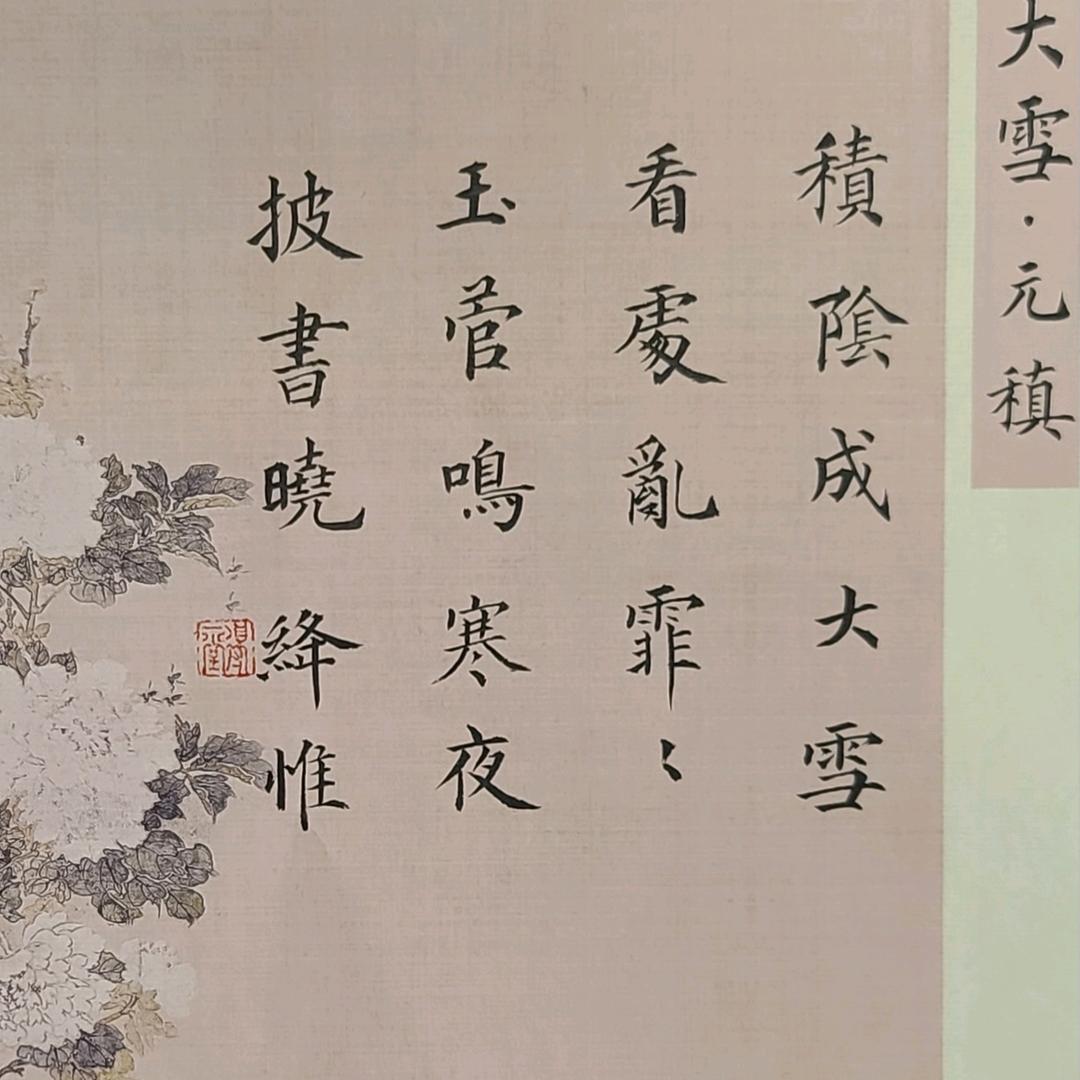 大雪·元稹
積陰成大雪
看處亂霏〻
玉管鳴寒夜
披書曉絳惟